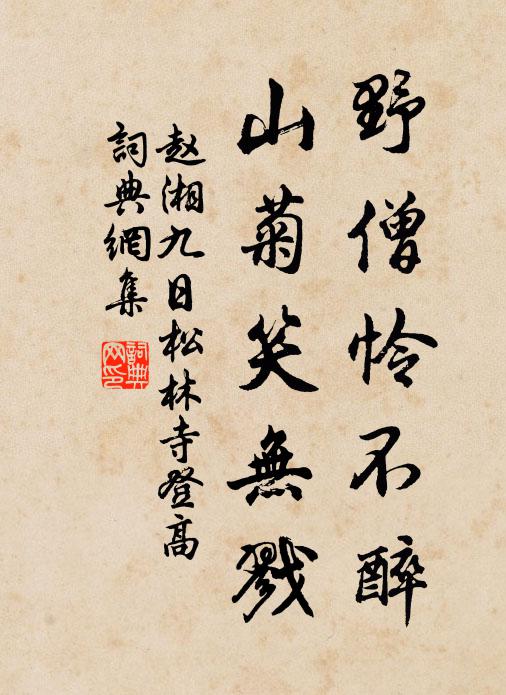 野僧怜不醉
山菊笑無戮
赵湘九日松林寺登高
詞典網集
詞典网印